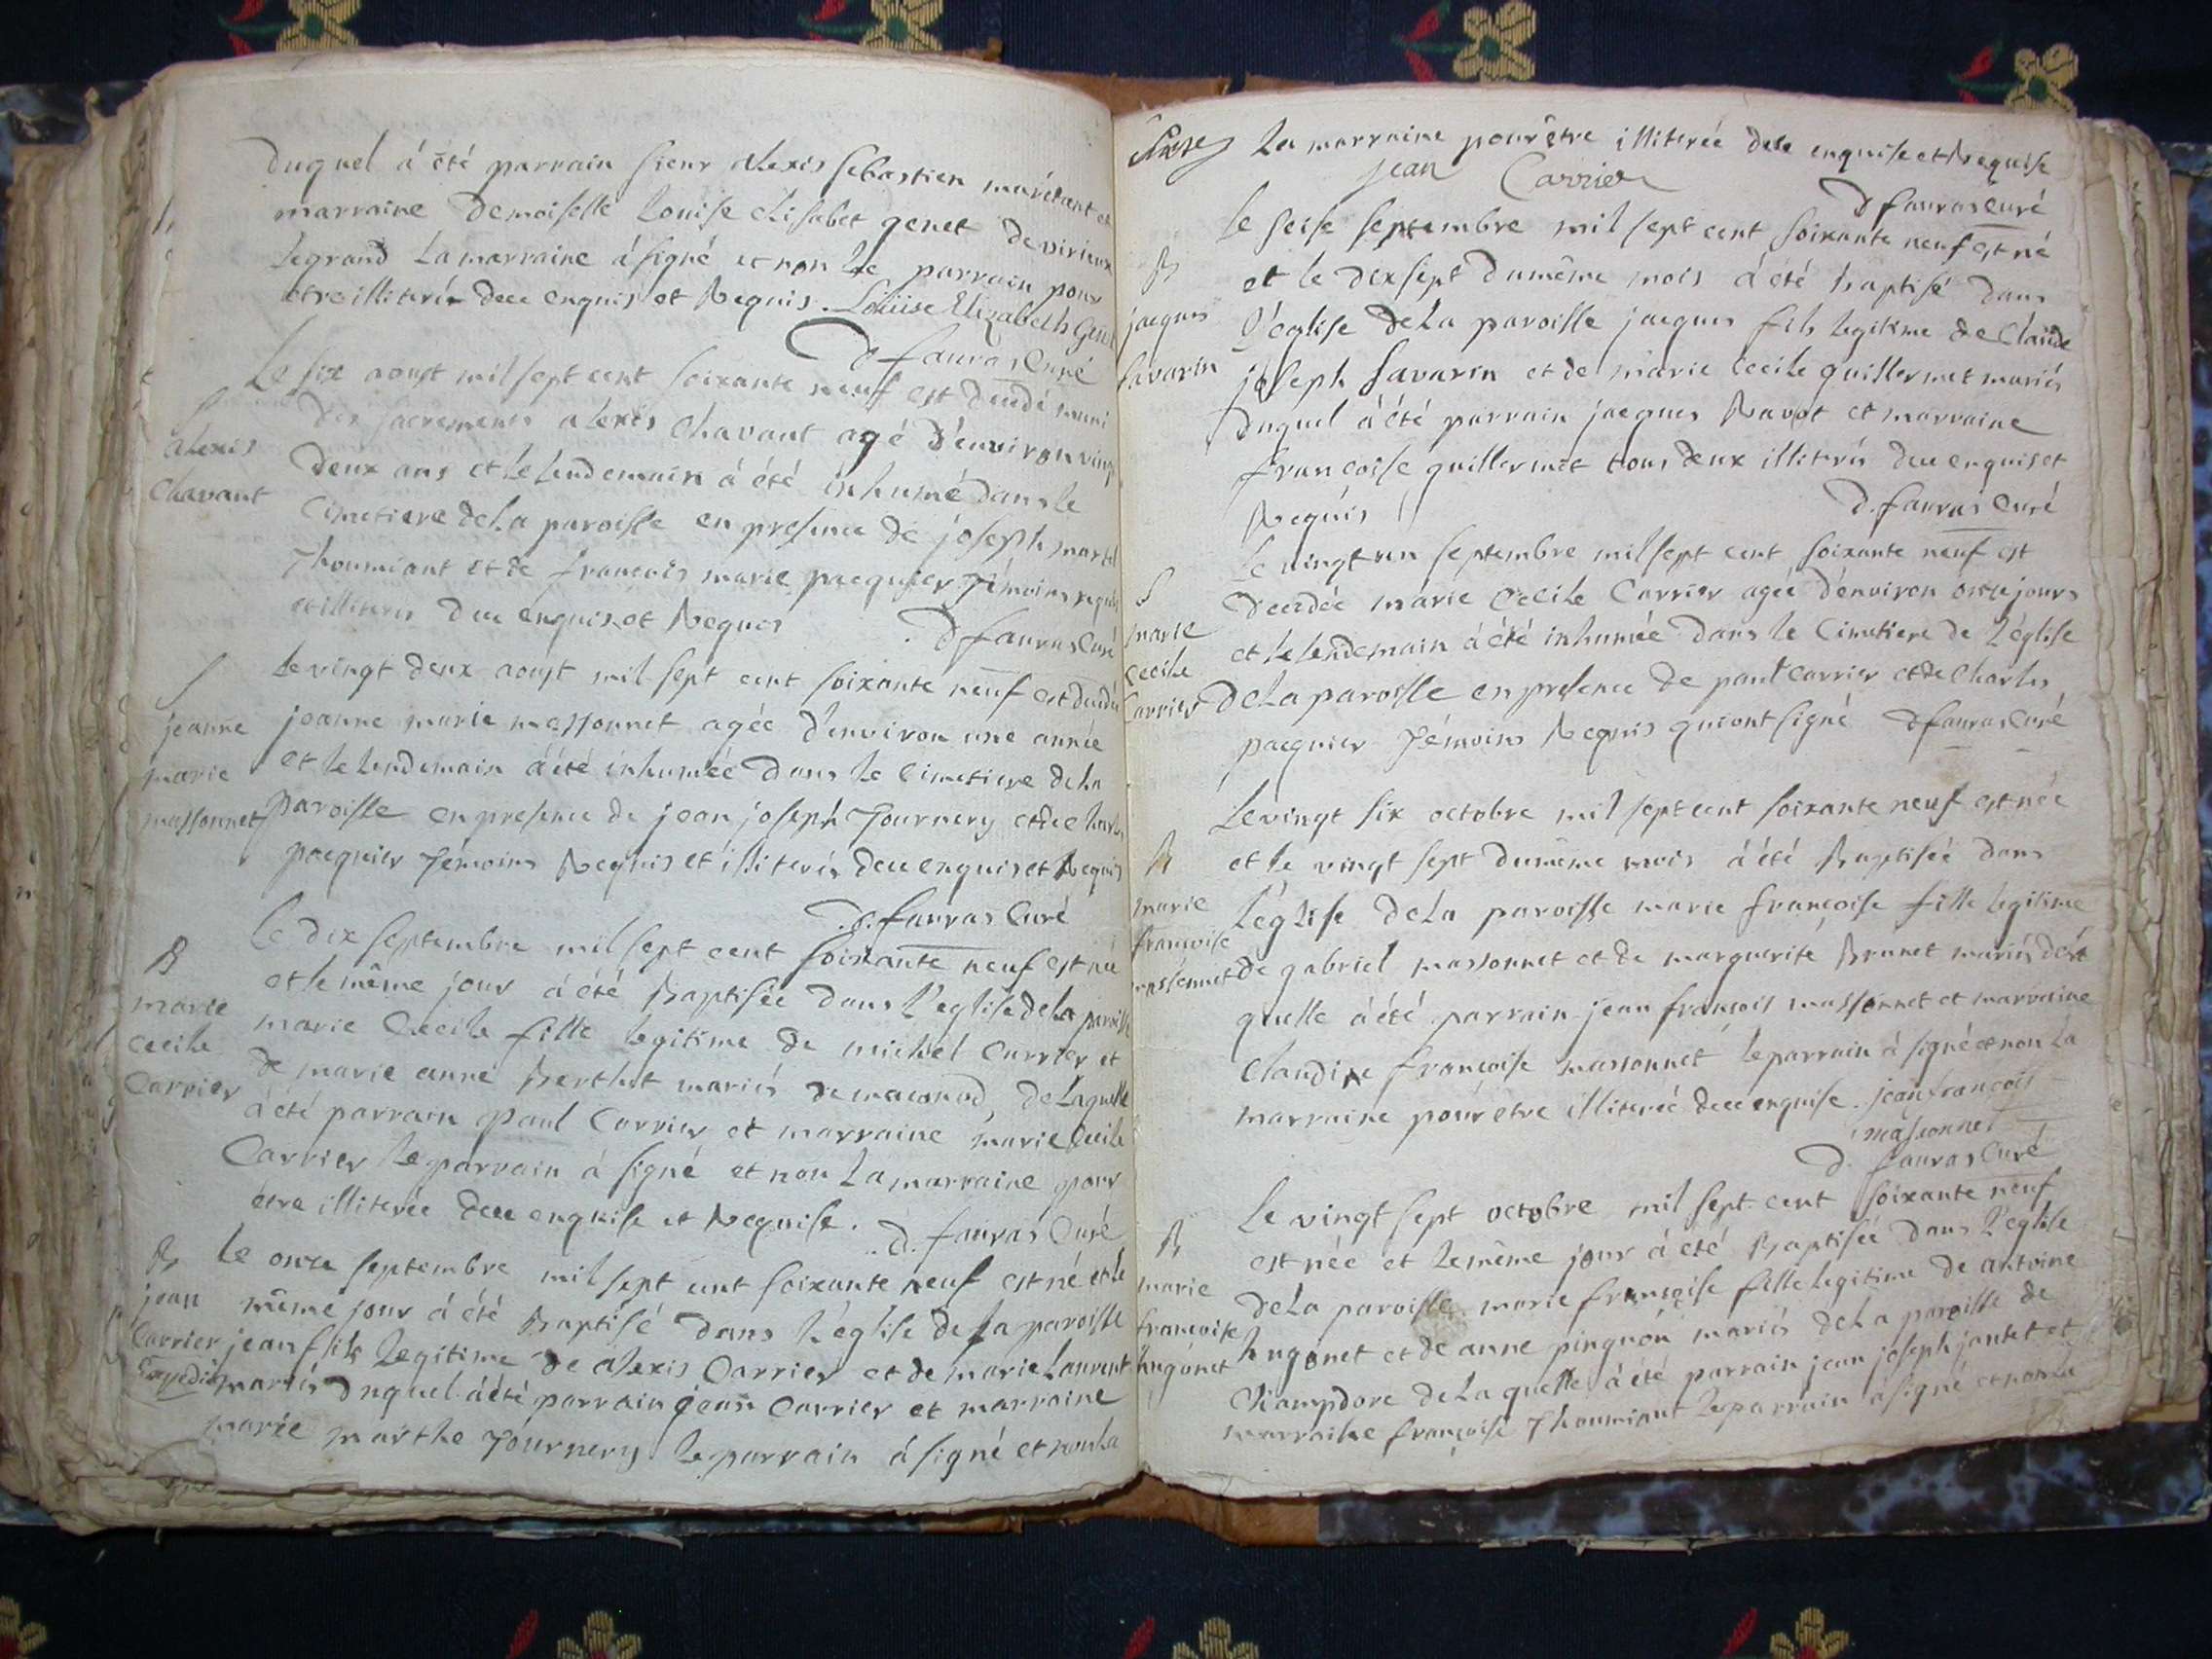 duquel á été parrain sieur alexis sebastien marétant et
marraine demoiselle Louise elisabet genet de virieux
legrand La marraine á signé et non le parrain pour
etre illiteré dece enquis et Requis. Loüise Elizabeth Genet
D fauras Curé
S
alexis
Chavant
Le six aoust mil sept cent soixante neuf est décédé muni
des sacrements alexis Chavant agé d'environ vingt
deux ans et le lendemain á été inhumé dans le
Cimetiere de la paroisse en presence de joseph martel
Thoumiant et de francois marie pacquier témoins requis
et illiterés dece enquis et Requis
D fauras Curé
S
jeanne
marie
massonnet
Le vingt deux aoust mil sept cent soixante neuf est décédée
jeanne marie massonnet agée d'environ une année
et le lendemain á été inhumée dans le Cimetiere de la
paroisse en presence de jean joseph Tournery et de charles
pacquier témoins Requis et illiterés dece enquis et Requis
D. fauras Curé
B
marie
cecile
Carrier
Le dix septembre mil sept cent soixante neuf est née
et le même jour á été Baptisée dans l'eglise de la paroisse
marie Cecile fille legitime de michel Carrier et
de marie anne Berthet mariés de maconod, de laquelle
á été parrain paul Carrier et marraine marie Cecile
Carrier le parrain á signé et non la marraine pour
être illiterée dece enquise et Requise.
D. fauras Curé
B
jean
Carrier
Expedié
Le onze septembre mil sept cent soixante neuf est né et le
même jour á été Baptisé dans l'église de la paroisse
jean fils Legitime de alexis Carrier et de marie Laurent
mariés duquel á été parrain jean Carrier et marraine
marie marthe Tournery le parrain á signé et non la
La marraine pour être illiterée dece enquise et Requise
jean Carrier
D fauras Curé
B
jacques
Savarin
le seise septembre mil sept cent soixante neuf est né
et le dix sept du même mois á été baptisé dans
L'eglise de La paroisse jacques fils legitime de Claude
joseph Savarin et de marie Cecile guillermet mariés
duquel á été parrain jacques Ravot et marraine
francoise guillermet tous deux illiterés dece enquis et
Requis
D. fauras Curé
S
marie
Cecile
Carrier
Le vingt un septembre mil sept cent soixante neuf est
decedée marie Cecile Carrier agée d'environ onze jours
et le lendemain á été inhumée dans le Cimetiere de L'église
de La paroisse en presence de paul Carrier et de Charles
pacquier témoins Requis qui ont signé D fauras Curé
B
marie
francoise
massonnet
Le vingt six octobre mil sept cent soixante neuf est née
et le vingt sept du même mois á été Baptisée dans
L'église de La paroisse marie francoise fille legitime
de gabriel massonnet et de marguerite Brunet mariés de la
quelle á été parrain jean francois massonnet et marraine
Claudine francoise massonnet le parrain á signé et non La
marraine pour etre illiterée dece enquise. jean francois
massonnet
D. fauras Curé
B
marie
francoise
hugonet
Le vingt sept octobre mil sept cent soixante neuf
est née et le même jour á été Baptisée dans l'eglise
de La paroisse marie francoise fille legitime de antoine
hugonet et de anne pinguon mariés de La paroisse de
Champdore de La quelle á été parrain jean joseph jantet et
marraine francoise Thoumiant le parrain á signé et non la